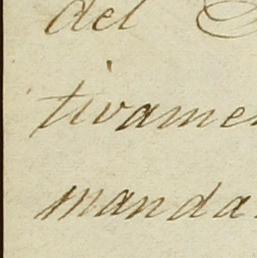 del
tivame
manda